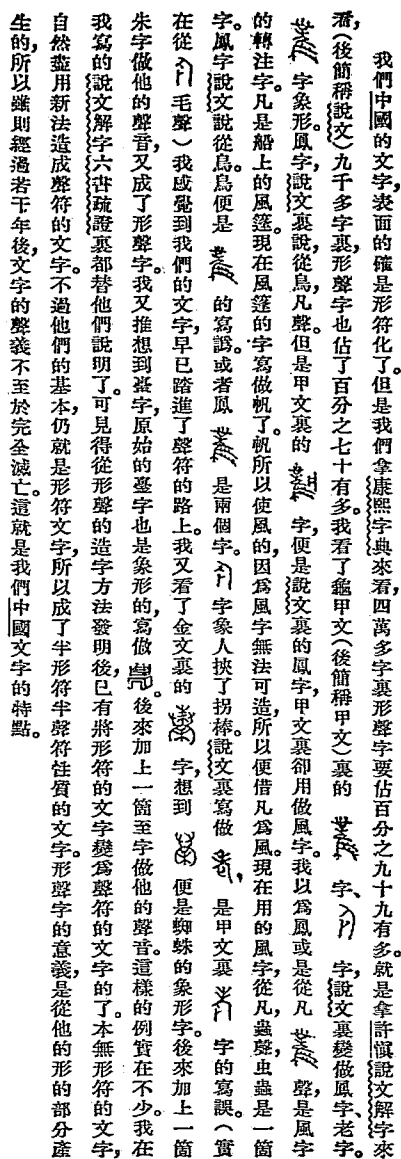 我們中國的文字，表面的確是形符化了。但是我們拿康熙字典來看，四萬多字裏形聲字要佔百分之九十九有多。就是拿許愼說文解字來
看，（後簡稱說文）九千多字裏，形聲字也佔了百分之七十有多。我看了龜甲文（後簡稱甲文）裏的 字、 字，說文裏變做鳳字、老字。
字象形。鳳字，說文裏說，從鳥，凡聲。但是甲文裏的 字，便是說文裏的鳳字，甲文裏卻用做風字。我以爲鳳或是從凡 聲，是風字
的轉注字。凡是船上的風篷。現在風篷的字寫做帆了。帆所以使風的，因爲風字無法可造，所以便借凡爲風。現在用的風字，從凡，蟲聲，虫蟲是一箇
字。鳳字說文說從鳥。鳥便是 的寫譌。或者鳳 是兩個字。 字象人挾了拐棒。說文裏寫做 ，是甲文裏 字的寫誤。（實
在從 毛聲）我感覺到我們的文字，早已踏進了聲符的路上。我又看了金文裏的 字，想到 便是蜘蛛的象形字。後來加上一箇
朱字做他的聲音，又成了形聲字。我又推想到臺字，原始的臺字也是象形的，寫做 。後來加上一箇至字做他的聲音。這樣的例實在不少。我在
我寫的說文解字六書疏證裏都替他們說明了。可見得從形聲的造字方法發明後，已有將形符的文字變爲聲符的文字的了。本無形符的文字，
自然盡用新法造成聲符的文字。不過他們的基本，仍就是形符文字，所以成了半形符半聲符性質的文字。形聲字的意義，是從他的形的部分產
生的，所以雖則經過若干年後，文字的聲義不至於完全滅亡。這就是我們中國文字的特點。